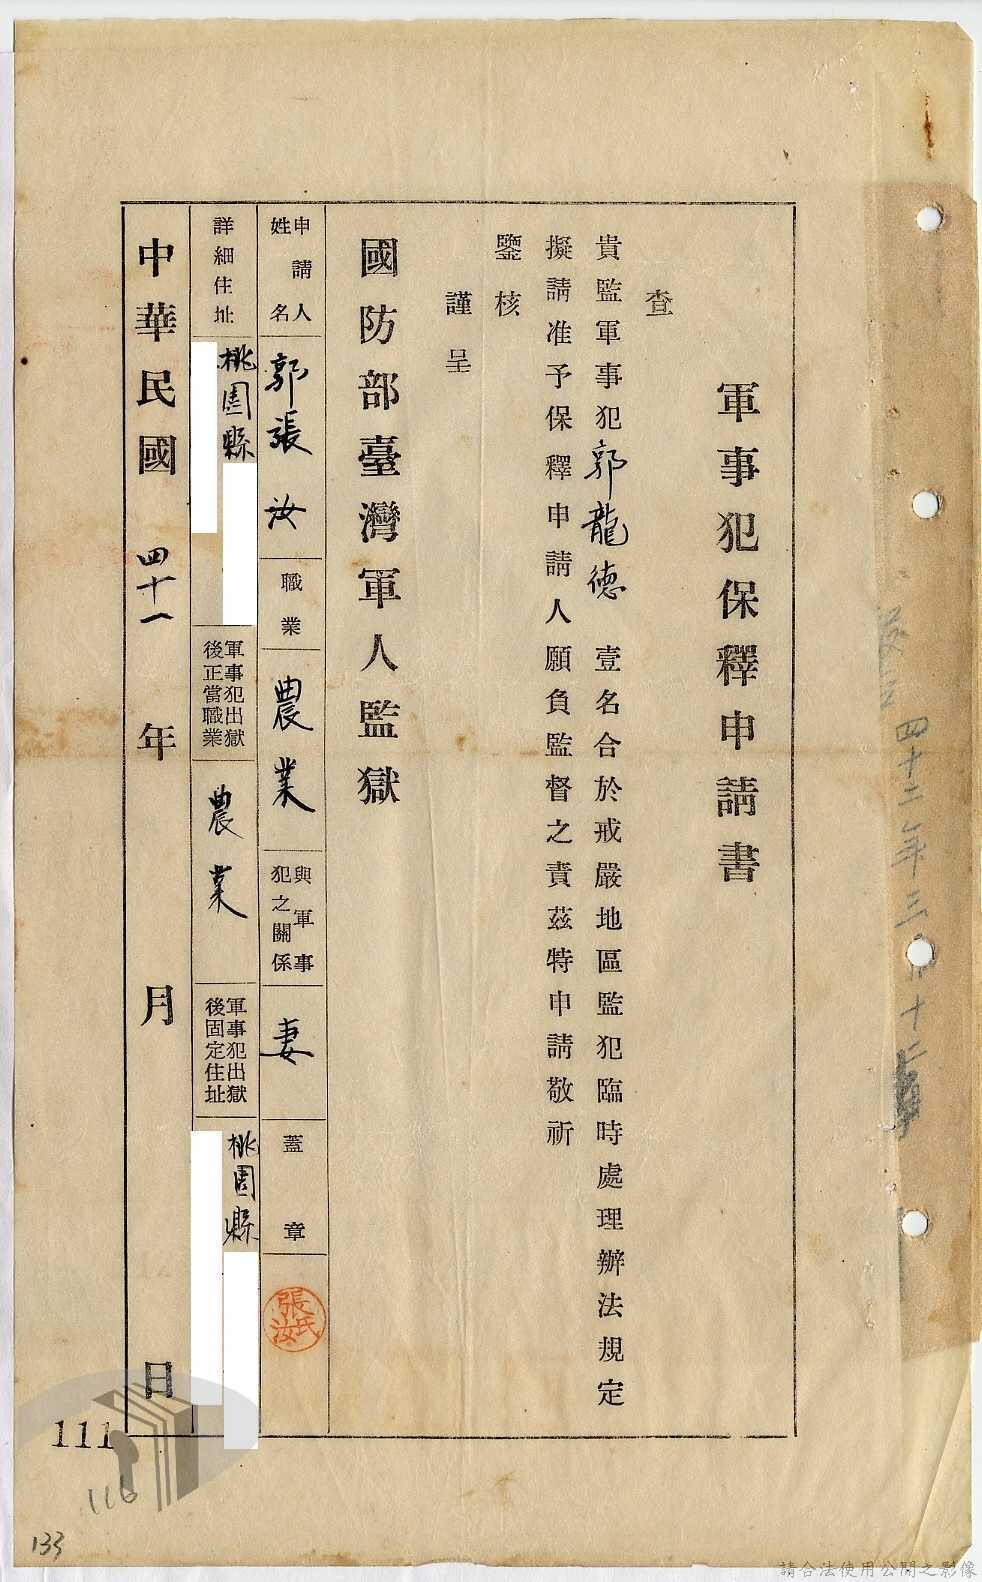 軍事犯保釋申請書
查
貴監軍事犯郭龍德壹名合於戒嚴地區監犯臨時處理辦法規定
擬請准予保釋申請人願負監督之責茲特申請敬祈
鑒核
謹呈
國防部臺灣軍人監獄
申請人姓名
郭張汝
職業
農業
與軍事犯之關係
妻
蓋章
張氏汝
詳細住址
桃園縣
軍事犯出獄後正當職業
農業
軍事犯出獄後固定住址
桃園縣
中華民國四十一年月日
四十二年三月十二
111
116
133
請合法使用公開之影像